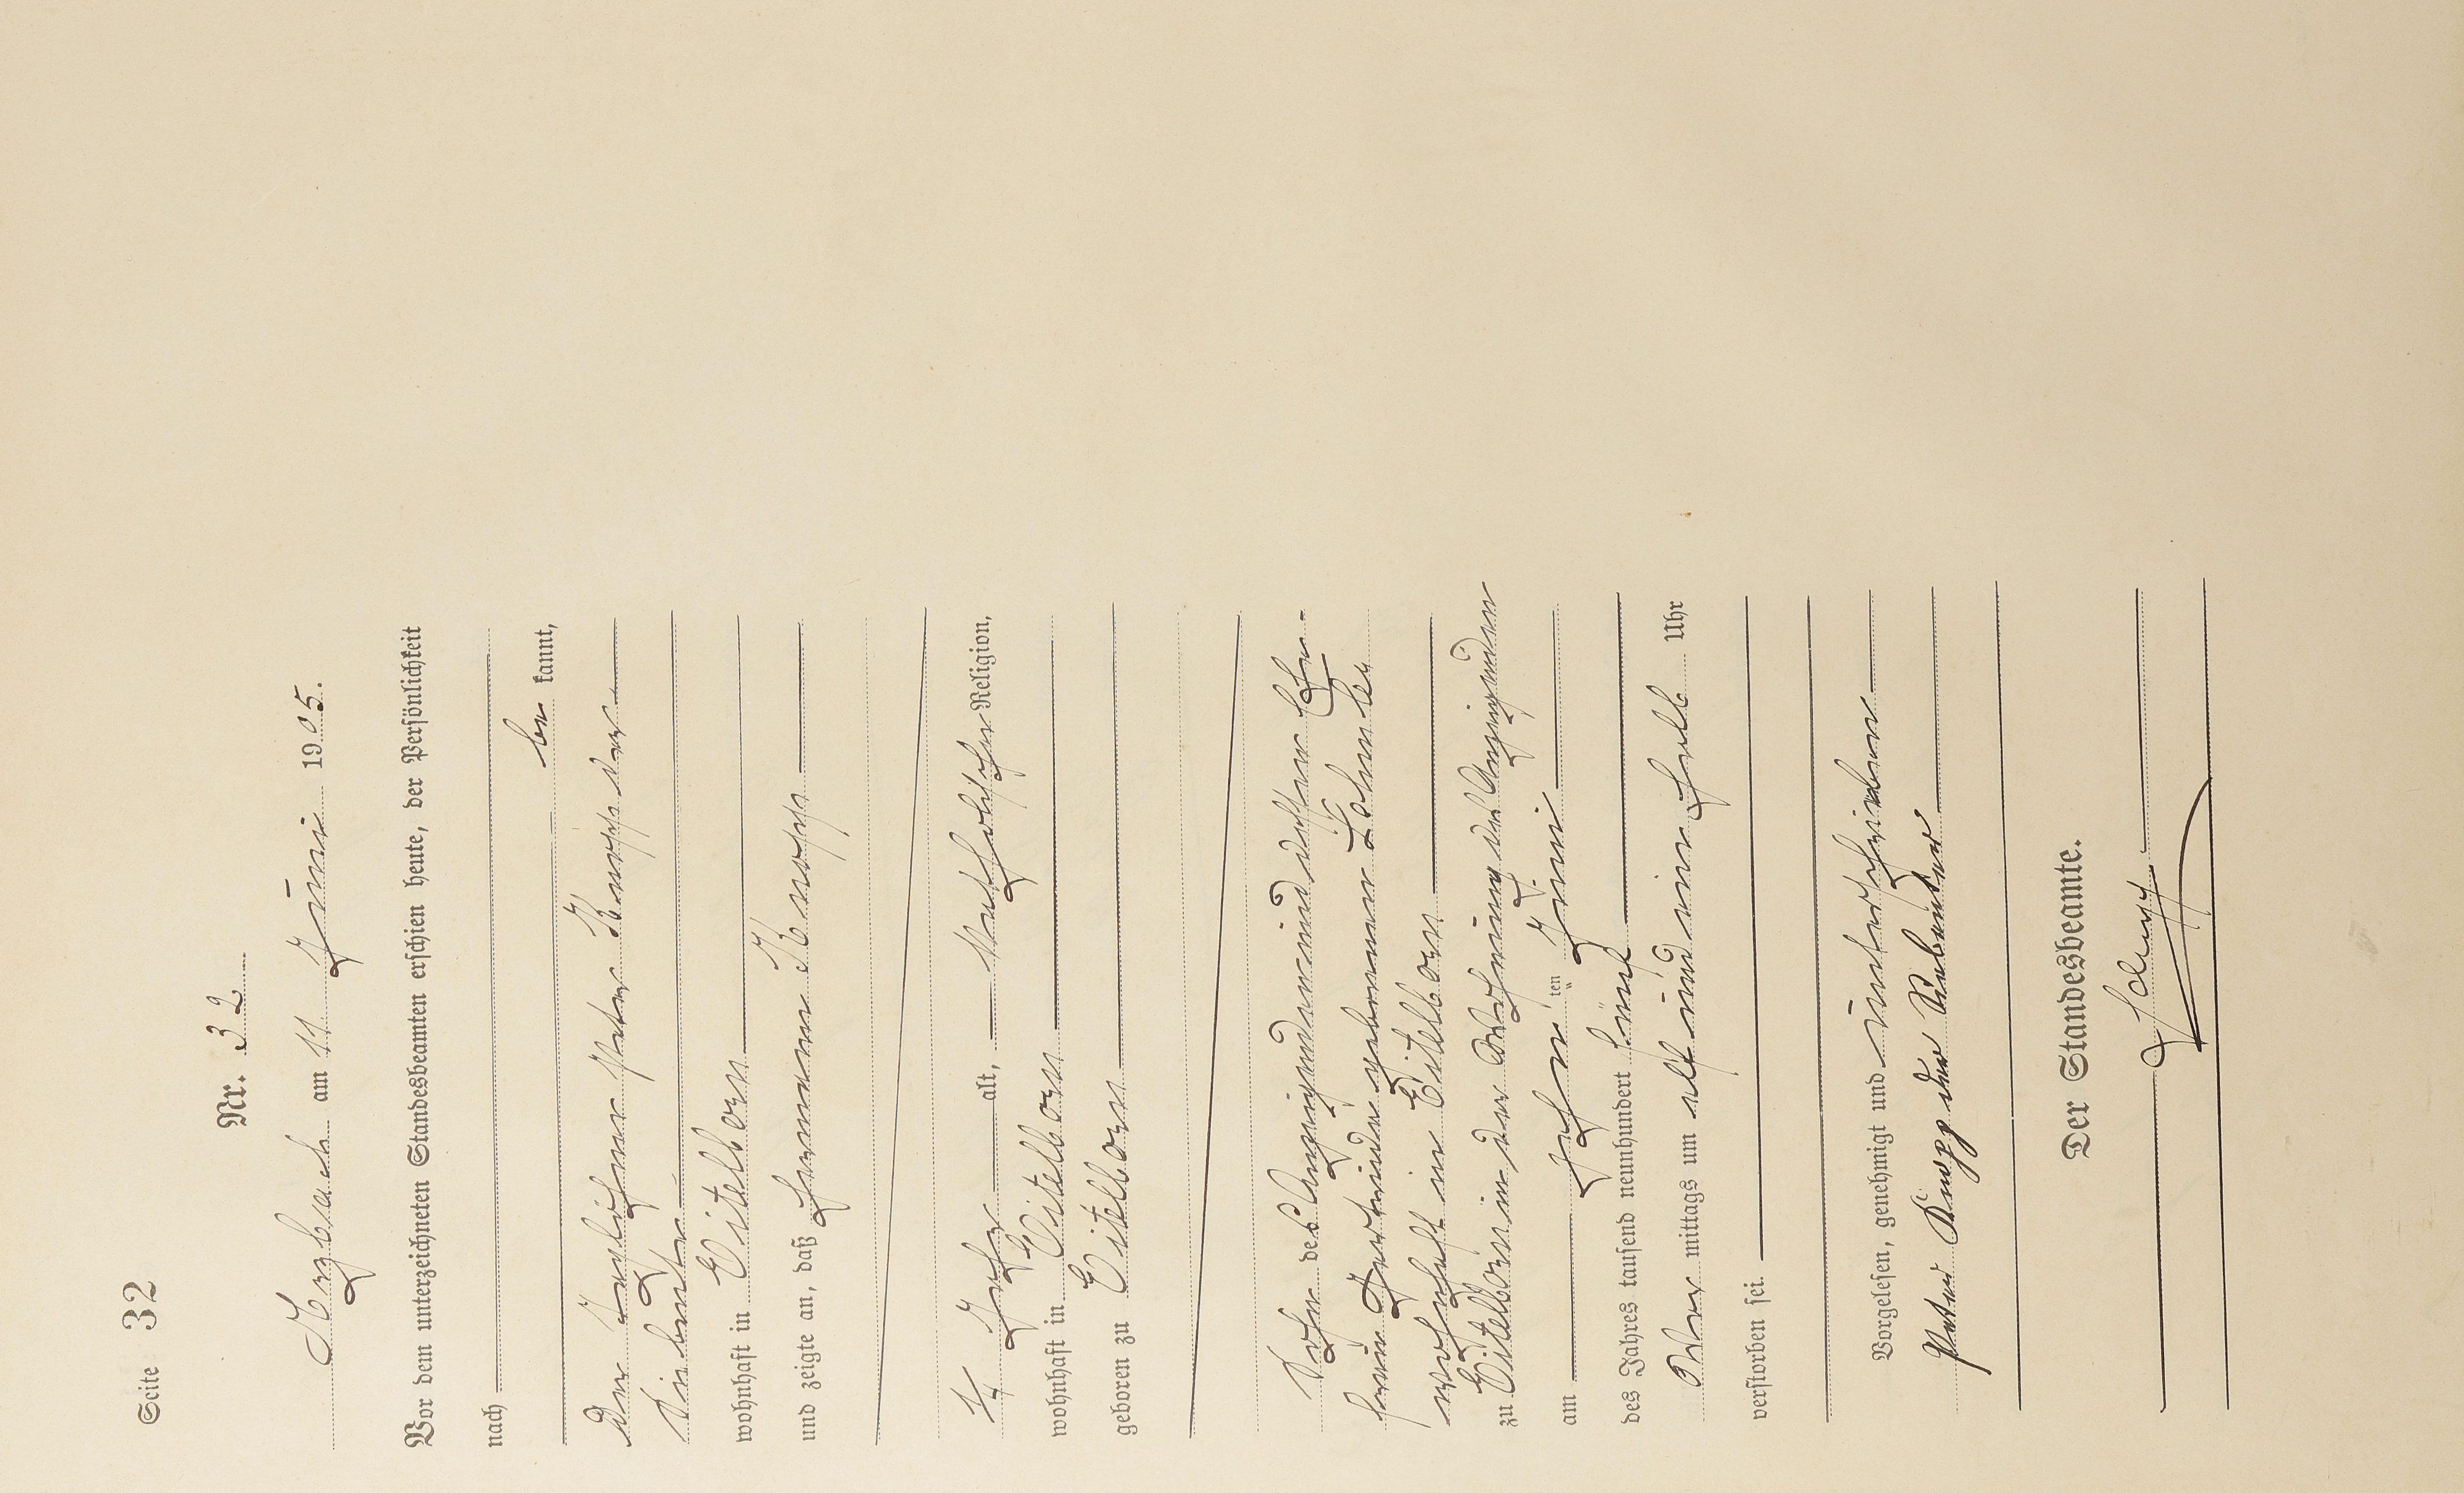 Seite 32
Nr. 32
Arzbach am 11 Juni 1905.
Vor dem unterzeichneten Standesbeamten erschien heute, der Persönlichkeit
nach
be kannt,
der Taglöhner Peter Knopp der
Siebente
wohnhaft in Eitelborn
und zeigte an, daß Hermann Knopp
Jahr alt, katholischer Religion,
wohnhaft in Eitelborn
geboren zu Eitelborn
Sohn des Anzeigenden und dessen Ehe-
frau Gertrud geborene
wohnhaft in Eitelborn
zu Eitelborn in der Wohnung des Anzeigenden
am zehn ten Juni
des Jahres tausend neunhundert fünf
Vor mittags um elf und ein halb Uhr
verstorben sei.
Vorgelesen, genehmigt und unterschrieben
Peter Knopp der Siebente
Der Standesbeamte.